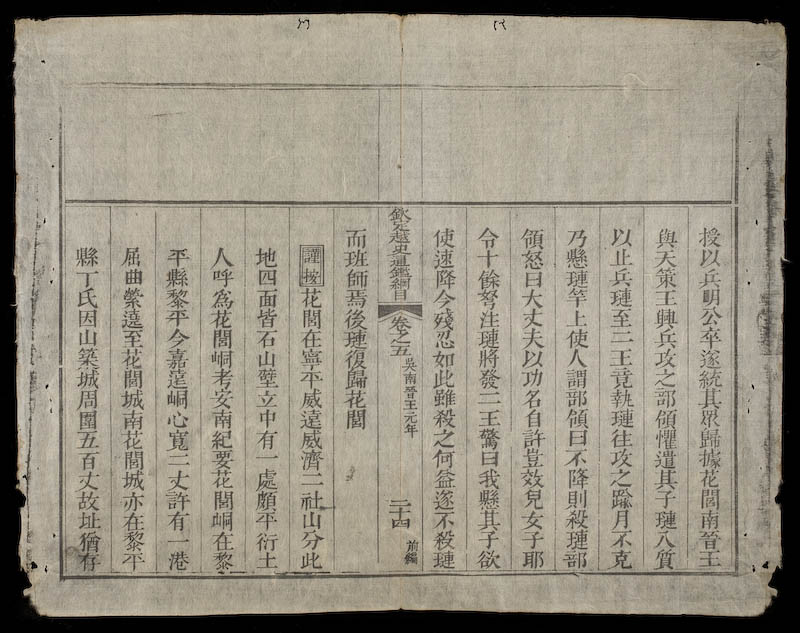 授以兵明公卒遂統其眾歸據花閭南晉王
與天策王興兵攻之部領懼遣其子璉入質
以止兵璉至二王竟執璉往攻之踰月不克
乃懸璉竿上使人謂部領曰不降則殺璉部
領怒曰大丈夫以功名自許豈效兒女子耶
令十餘弩注璉將發二王驚曰我懸其子欲
使速降今殘忍如此雖殺之何益遂不殺璉
欽定越史通鑑綱目 卷之五 吳南晉王元年 二十四 前編
而班師焉後璉復歸花閭
謹按花閭在寧平威遠威濟二社山分此
地四面皆石山壁立中有一處頗平衍土
人呼為花閭峒考安南紀要花閭峒在黎
平縣黎平今嘉遠峒心寬二丈許有一港
屈曲縈遶至花閭城南花閭城亦在黎平
縣丁氏因山築城周圍五百丈故址猶存